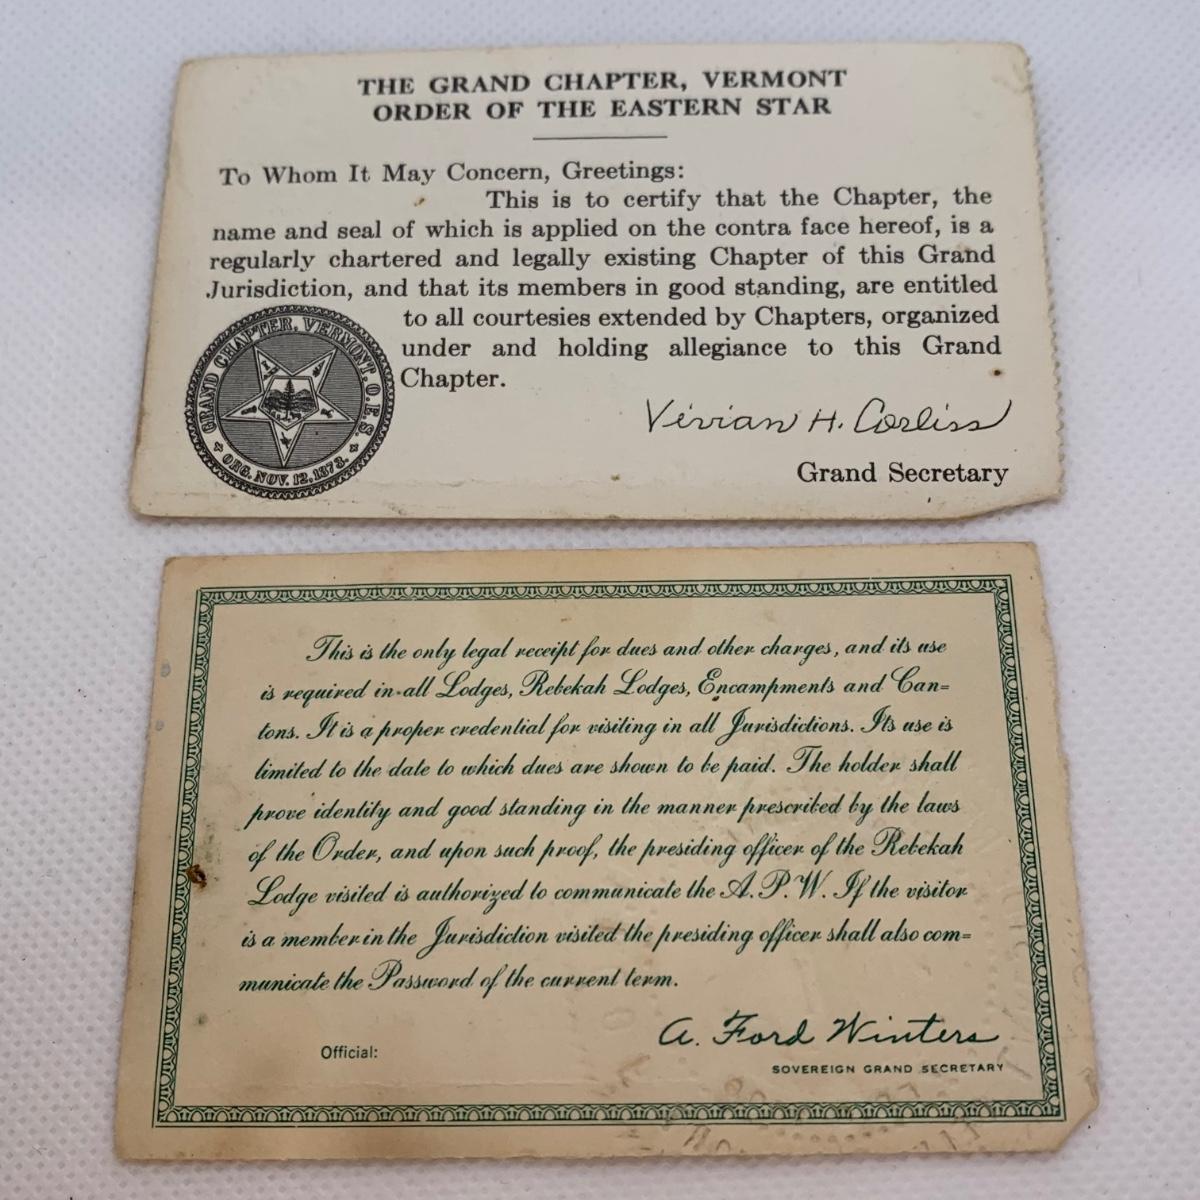 THE GRAND CHAPTER, VERMONT
ORDER OF THE EASTERN STAR
To Whom It May Concern, Greetings:
This is to certify that the Chapter, the
name and seal of which is applied on the contra face hereof, is a
regularly chartered and legally existing Chapter of this Grand
Jurisdiction, and that its members in good standing, are entitled
to all courtesies extended by Chapters, organized
under and holding allegiance to this Grand
Chapter.
GRAND CHAPTER, VERMONT, O.E.S.
ORG. NOV. 12, 1873.
Vivian H. Corliss
Grand Secretary
This is the only legal receipt for dues and other charges, and its use
is required in all Lodges, Rebekah Lodges, Encampments and Can=
tons. It is a proper credential for visiting in all Jurisdictions. Its use is
limited to the date to which dues are shown to be paid. The holder shall
prove identity and good standing in the manner prescribed by the laws
of the Order, and upon such proof, the presiding officer of the Rebekah
Lodge visited is authorized to communicate the A. P. W. If the visitor
is a member in the Jurisdiction visited the presiding officer shall also com=
municate the Password of the current term.
A. Ford Winters
Official:
SOVEREIGN GRAND SECRETARY